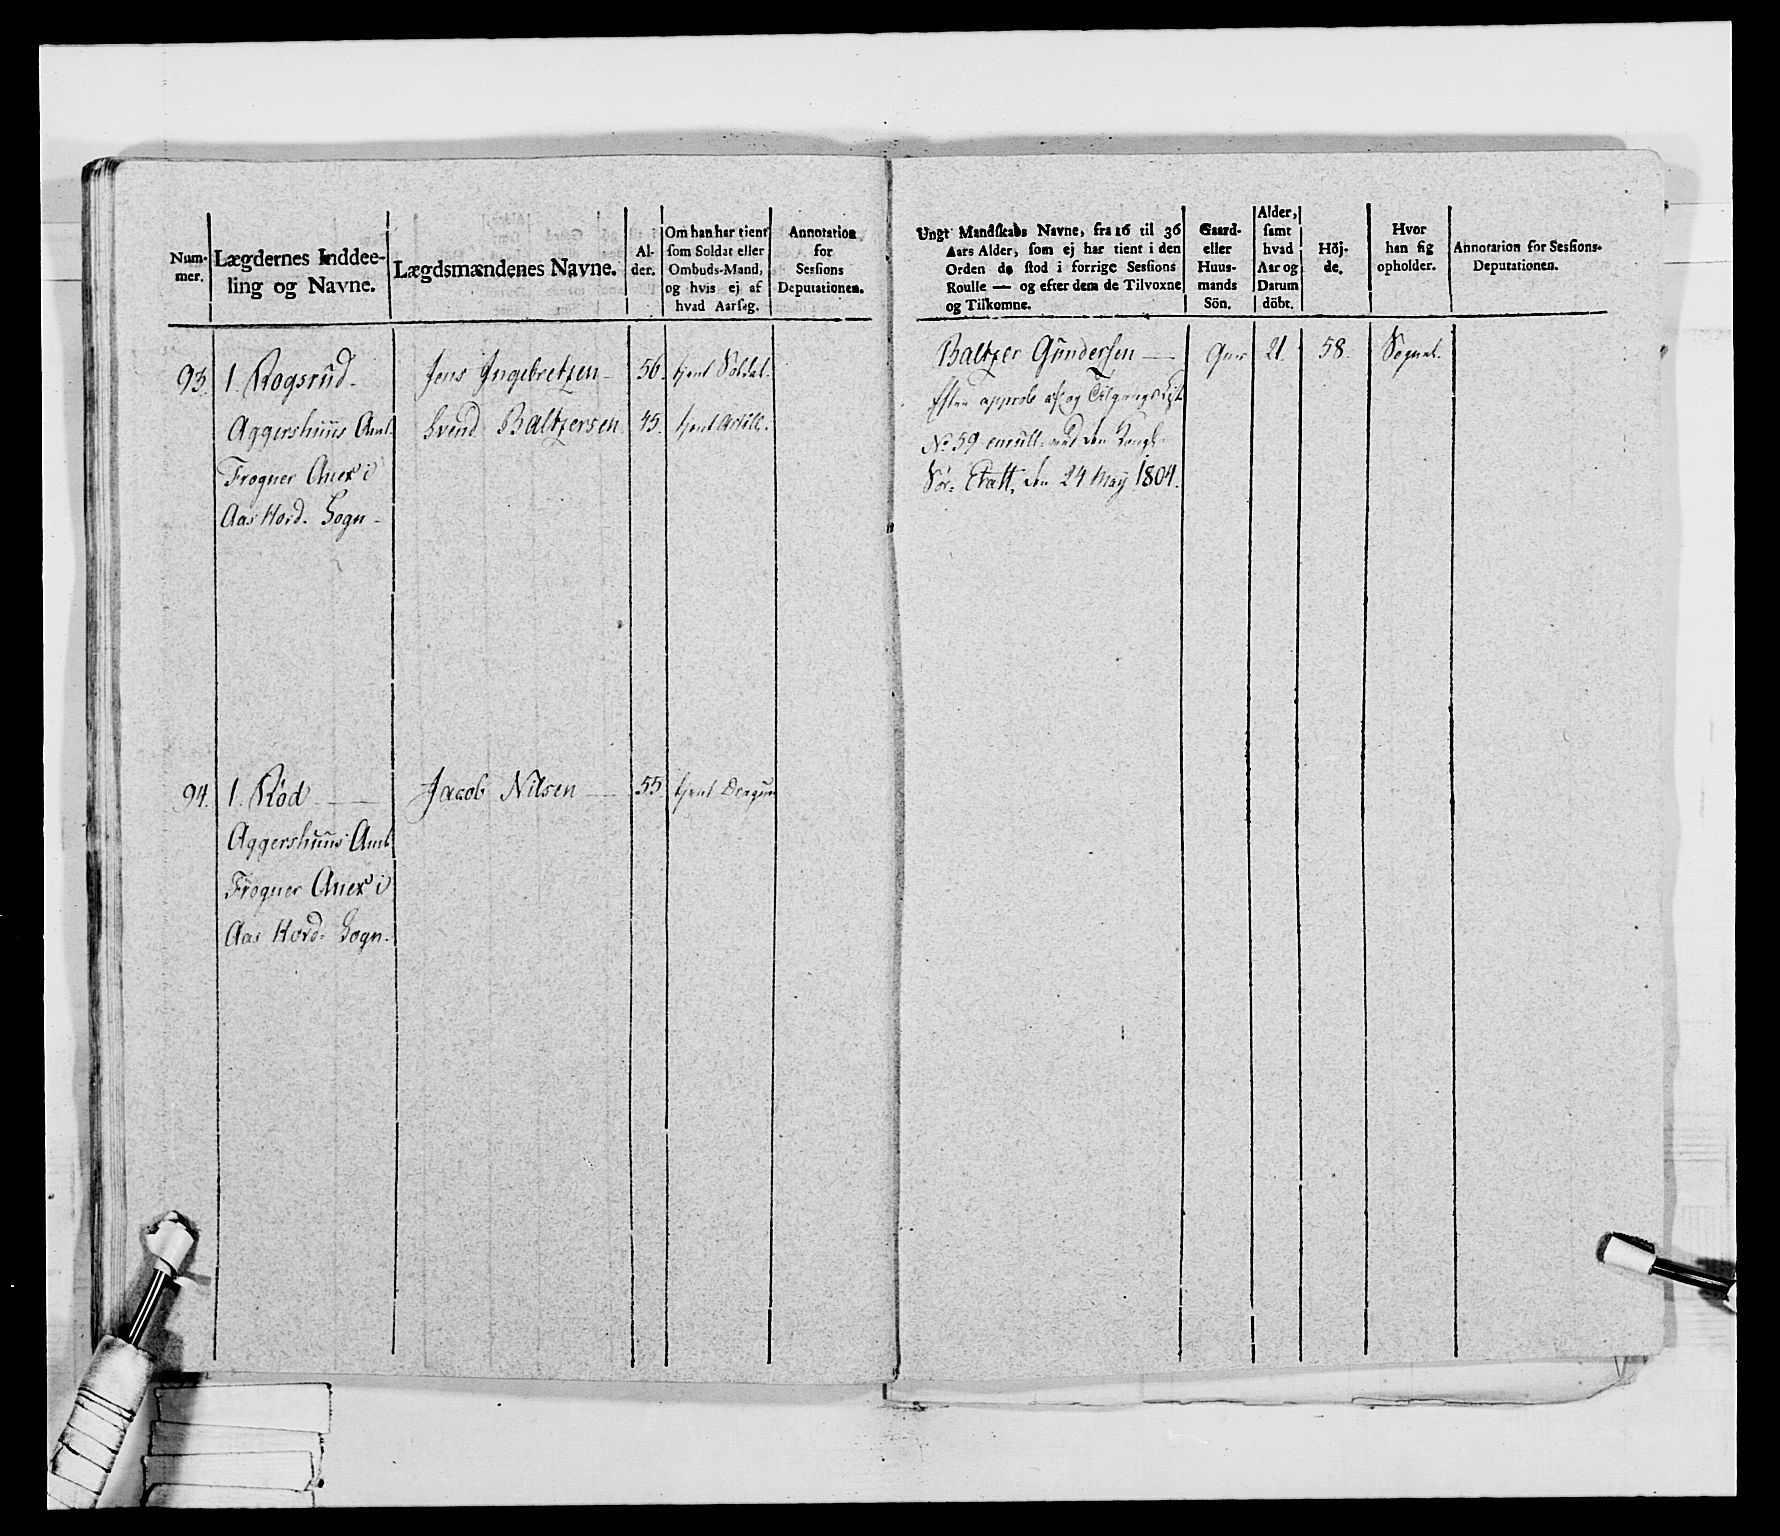 Num-
mer.
Lægdernes Inddee-
ling og Navne.
Lægdsmændenes Navne.
Al-
der.
Om han har tient
som Soldat eller
Ombuds-Mand,
og hvis ej af
hvad Aarsag.
Annotation
for
Sessions
Deputationen.
93. 1. Rogsrud. Jens Ingebretzen 56. tjent Soldat.
Aggershuus Amt. Svend Baltzersen 45. tjent Artill.
Frogner Anex i
Aas Hovd. Sogn
94. 1. Rød Jacob Nilsen 55 tjent Dragun
Aggershuus Amt
Frogner Anex i
Aas Hovd. Sogn.
Ungt Mandskabs Navne, fra 16 til 36
Aars Alder, som ej har tient i den
Orden de stod i forrige Sessions
Roulle — og efter dem de Tilvoxne
og Tilkomne.
Gaard-
eller
Huus-
mands
Sön.
Alder,
samt
hvad
Aar og
Datum
döbt.
Höj-
de.
Hvor
han sig
opholder.
Annotation for Sessions-
Deputationen.
Baltzer Gundersen 21. 58. Sognet.
Efter approb af og Tilgangs List
No 59 enrull. ved den Kongl.
Sør. Etatt, den 24 Maij 1804.